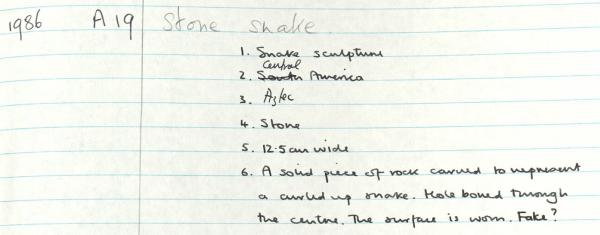 1986 A19 Stone snake.
1. Snake sculpture
Central
2. South America
3. Aztec
4. Stone
5. 12.5cm wide
6. A solid piece of rock carved to represent
a curled up snake. Hole bored through
the centre. The surface is worn. Fake?